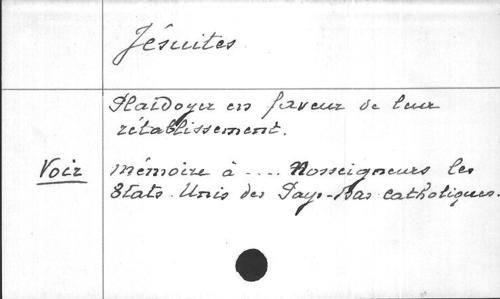 Jésuites
Plaidoyer en faveur de leur
rétablissement.
Voir mémoire à .... Nosseigneurs les
Etats-Unis des Pays-Bas catholiques.